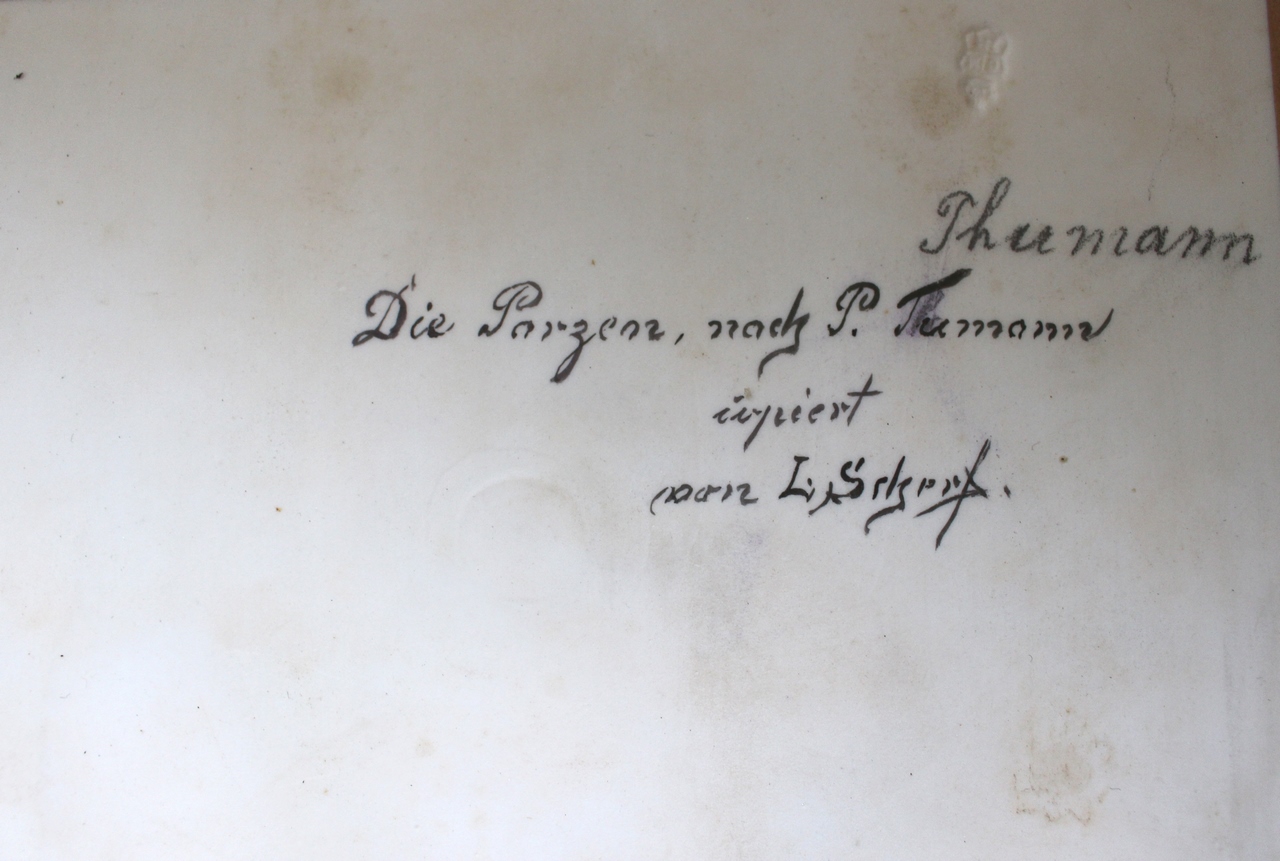 Thumann
Die Parzen, nach P. Tumann
kopiert
von L. Scherf.